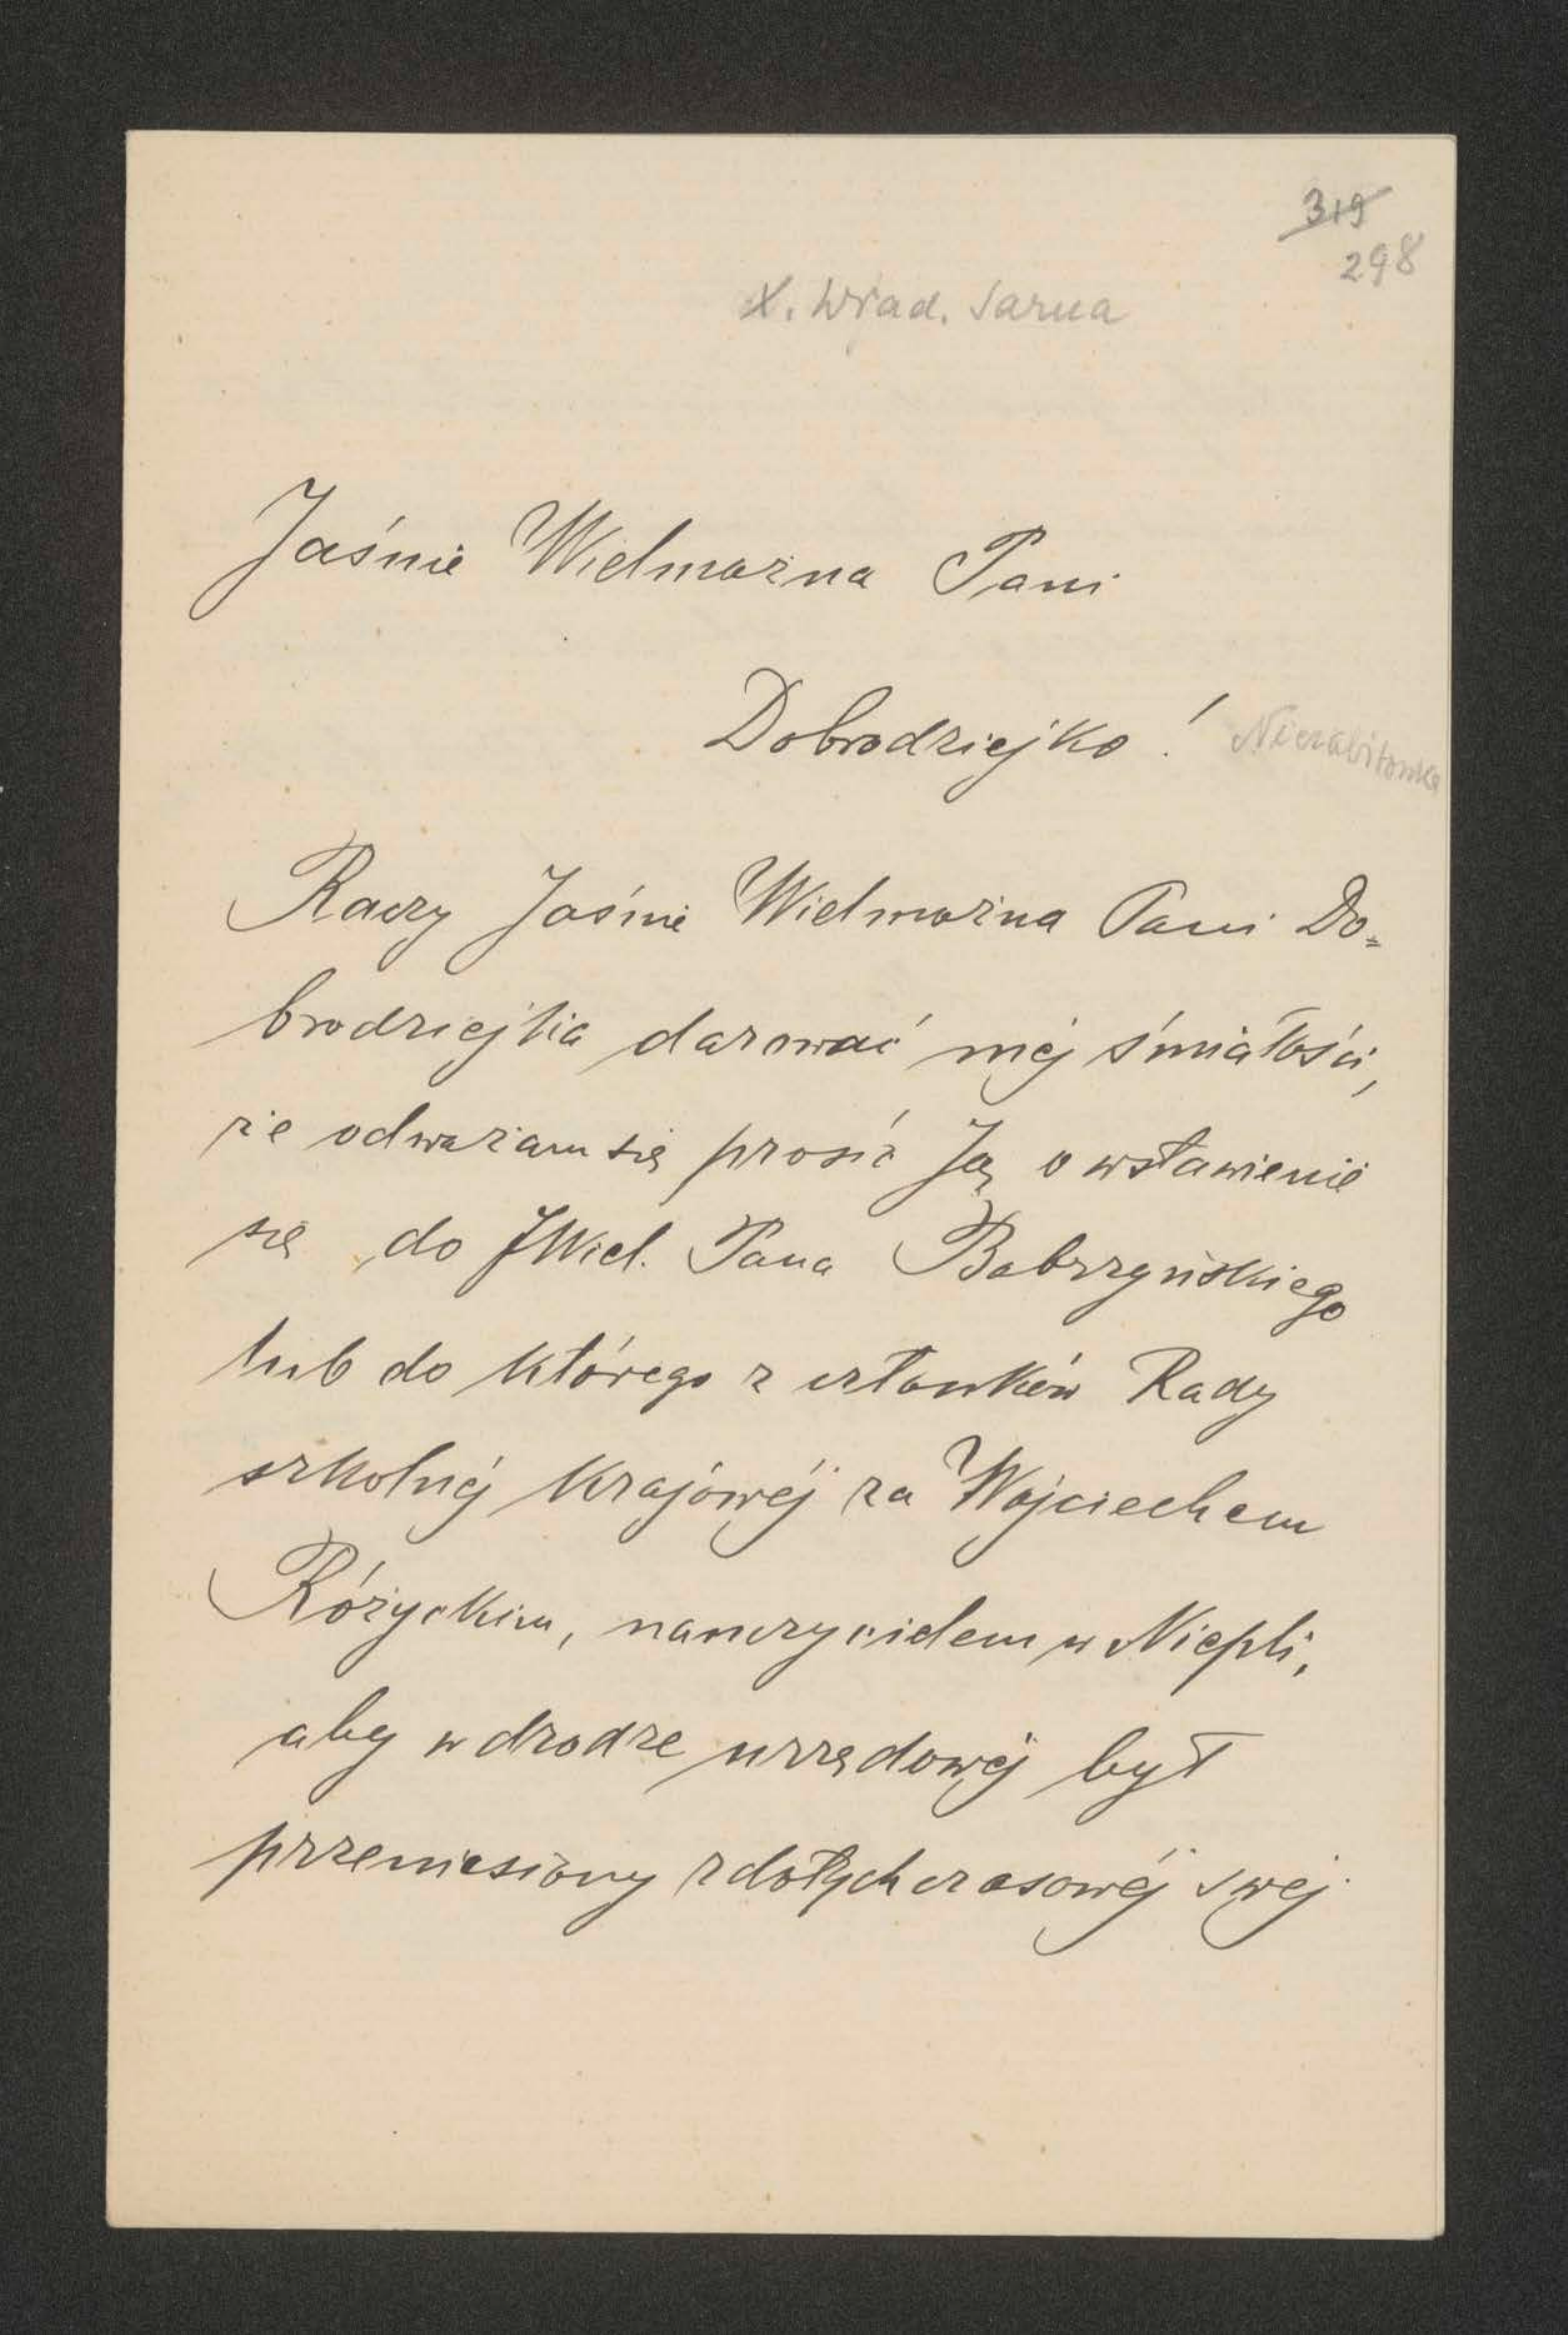 319
298
X. Wład. Sarna
Jaśnie Wielmożna Pani
Dobrodziejko!
Niezabitowska
Raczy Jaśnie Wielmożna Pani Do=
brodziejka darować méj śmiałości,
że odważam się prosić Ją o wstawienie
się do JWiel. Pana Bobrzyńskiego
lub do którego z członków Rady
szkolnéj krajowéj za Wojciechem
Różyckim, nauczycielem w Niepli,
aby w drodze urzędowéj był
przeniesiony z dotychczasowéj swéj